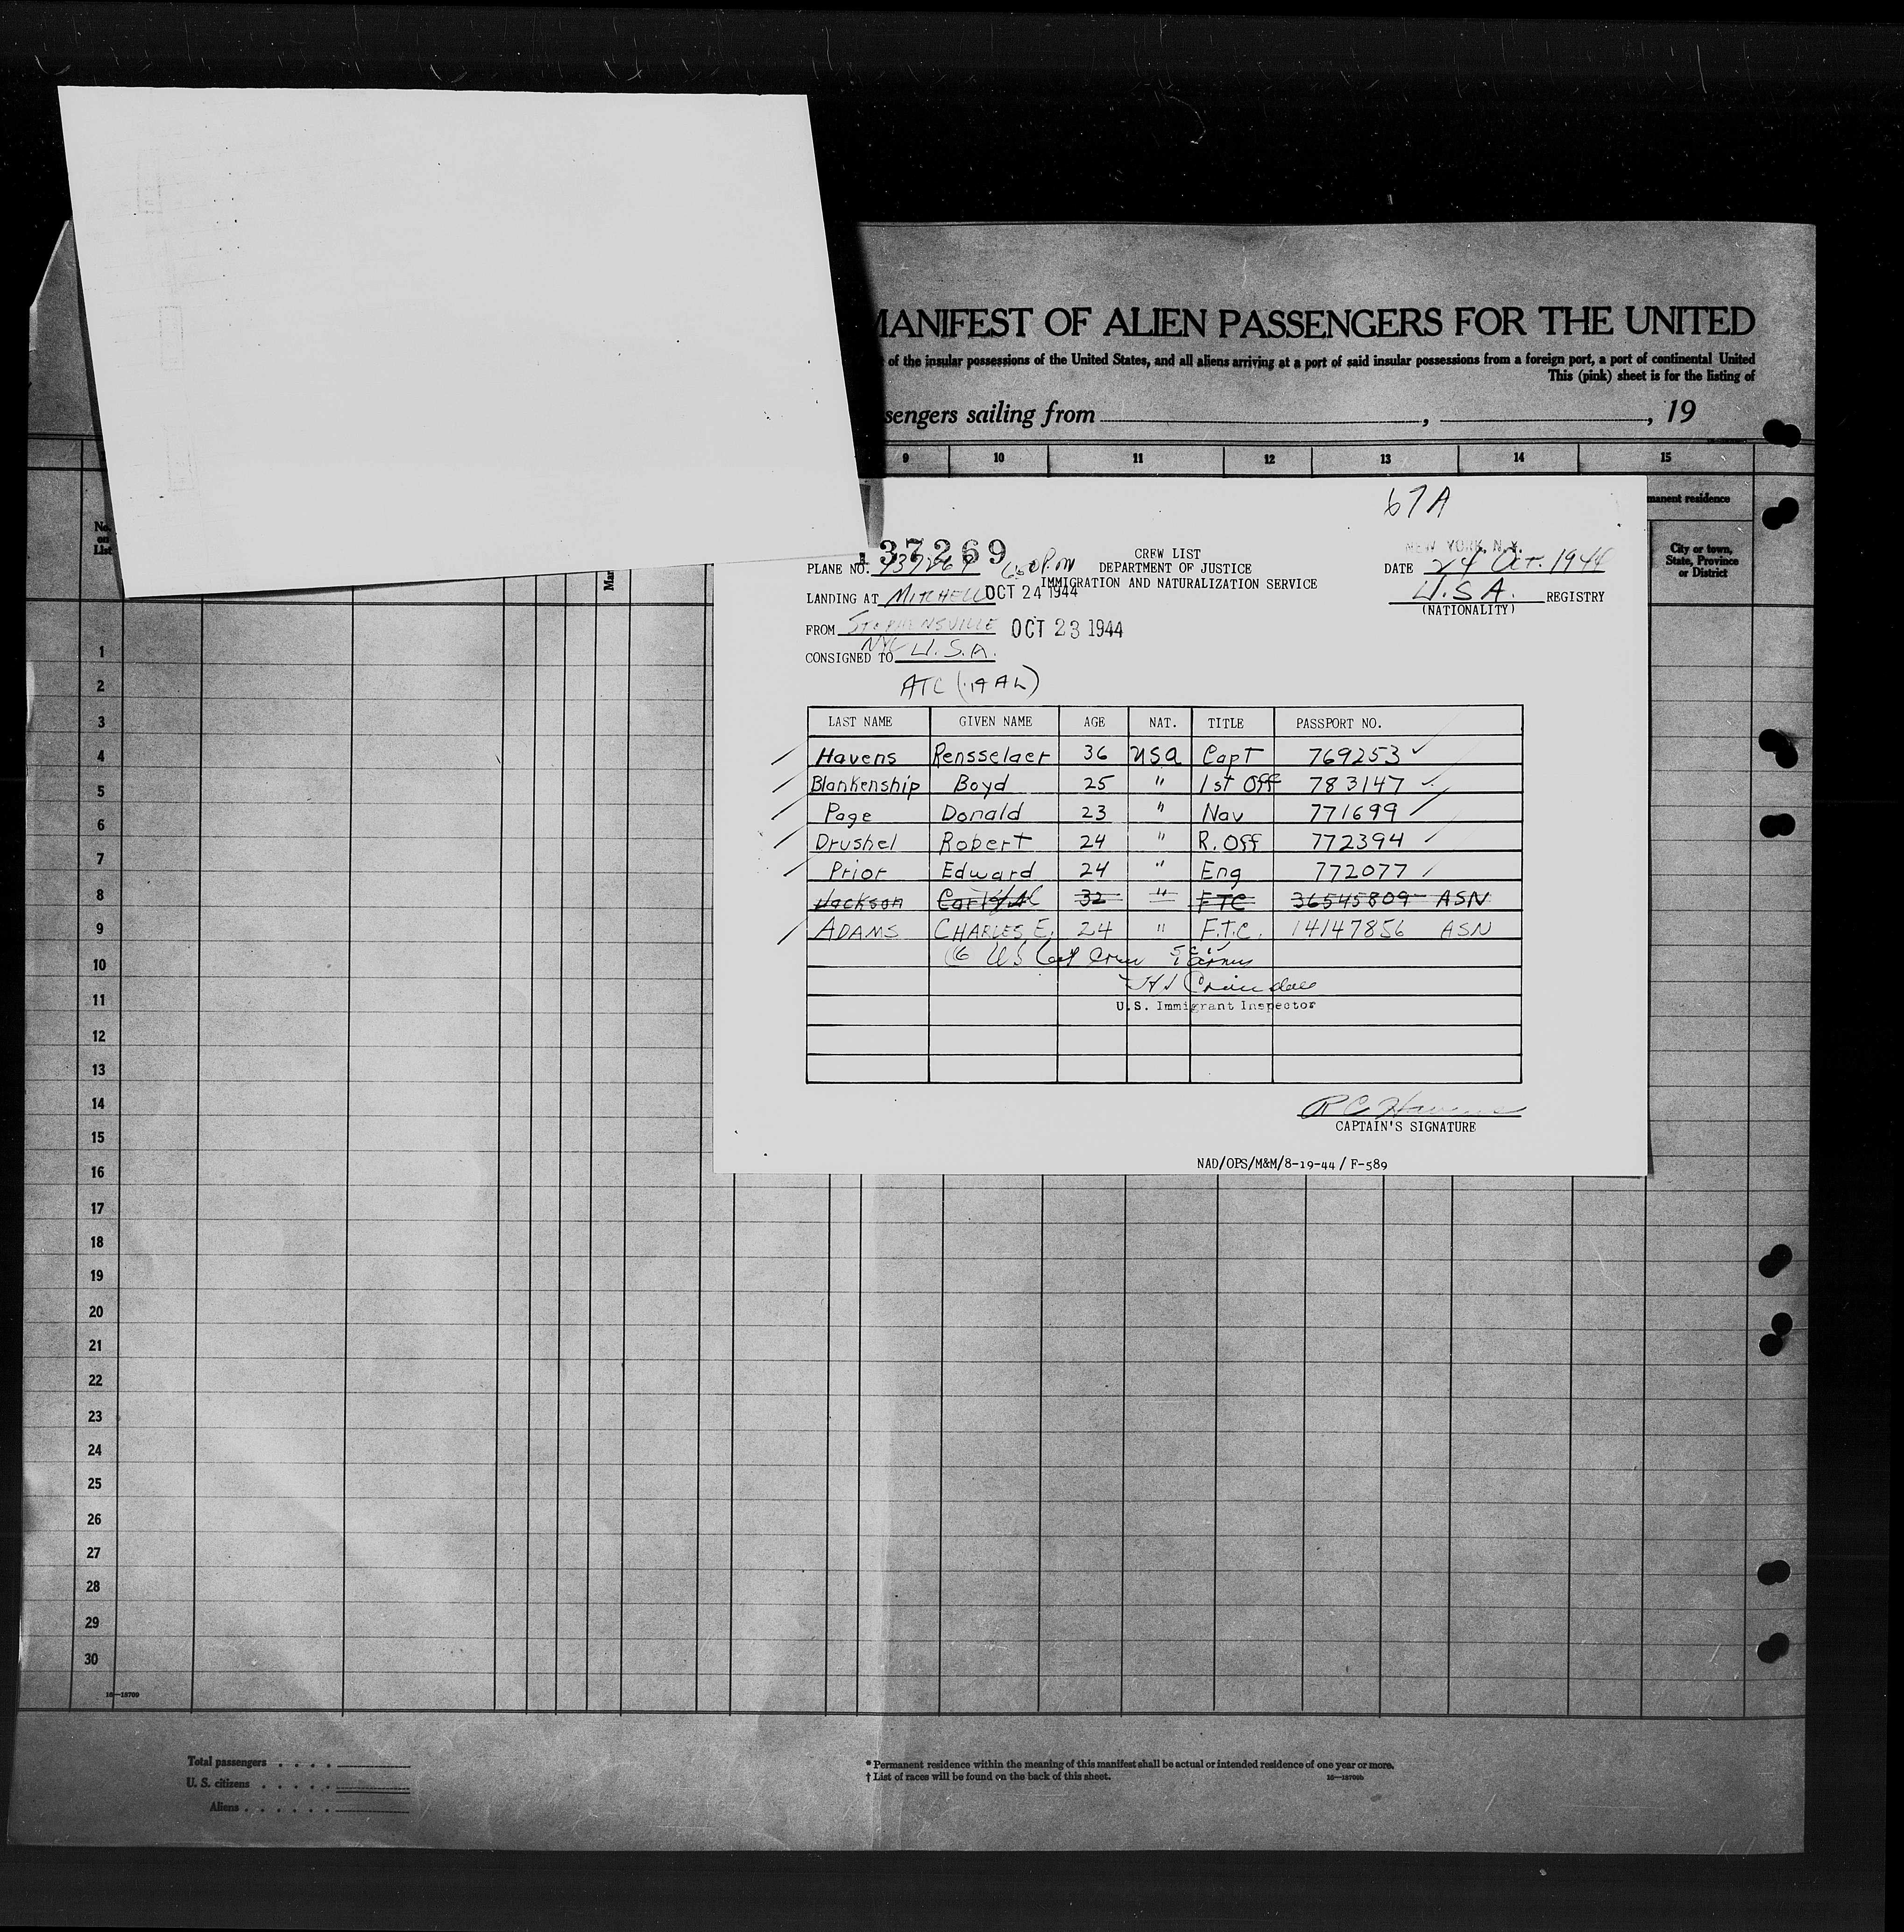 MANIFEST OF ALIEN PASSENGERS FOR THE UNITED
of the insular possessions of the United States, and all aliens arriving at a port of said insular possessions from a foreign port, a port of continental United
This (pink) sheet is for the listing of
sengers sailing from , , 19
9 10 11 12 13 14 15
manent residence
No. on List
City or town, State, Province or District
67A
137269
CREW LIST
NEW YORK, N.Y.
PLANE NO. DEPARTMENT OF JUSTICE DATE 24 Oct. 1944
IMMIGRATION AND NATURALIZATION SERVICE
LANDING AT MITCHELL OCT 24 1944 U.S.A. REGISTRY
(NATIONALITY)
FROM STEPHENSVILLE OCT 23 1944
NYC
CONSIGNED TO U.S.A.
ATC
LAST NAME GIVEN NAME AGE NAT. TITLE PASSPORT NO.
Havens Rensselaer 36 USA Capt 769253
Blankenship Boyd 25 " 1st Off 783147
Page Donald 23 " Nav 771699
Drushel Robert 24 " R. Off 772394
Prior Edward 24 " Eng 772077
Jackson 32 " FTC 36545809 ASN
ADAMS CHARLES E. 24 " F.T.C. 14147856 ASN
U.S. Immigrant Inspector
R C Havens
CAPTAIN'S SIGNATURE
NAD/OPS/M&M/8-19-44/F-589
1
2
3
4
5
6
7
8
9
10
11
12
13
14
15
16
17
18
19
20
21
22
23
24
25
26
27
28
29
30
16—18709
Total passengers . . . .
U. S. citizens . . . . .
Aliens . . . . . .
* Permanent residence within the meaning of this manifest shall be actual or intended residence of one year or more.
† List of races will be found on the back of this sheet.
16—18709b